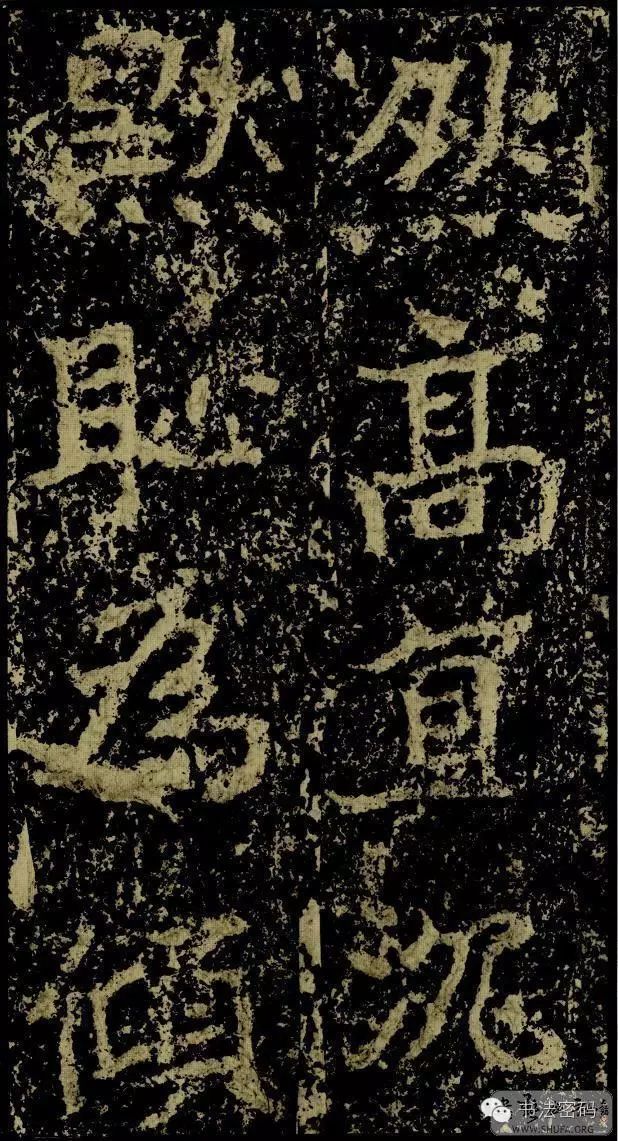 然高直沉
默耻為傾
书法密码
WWW.SHUFA.ORG